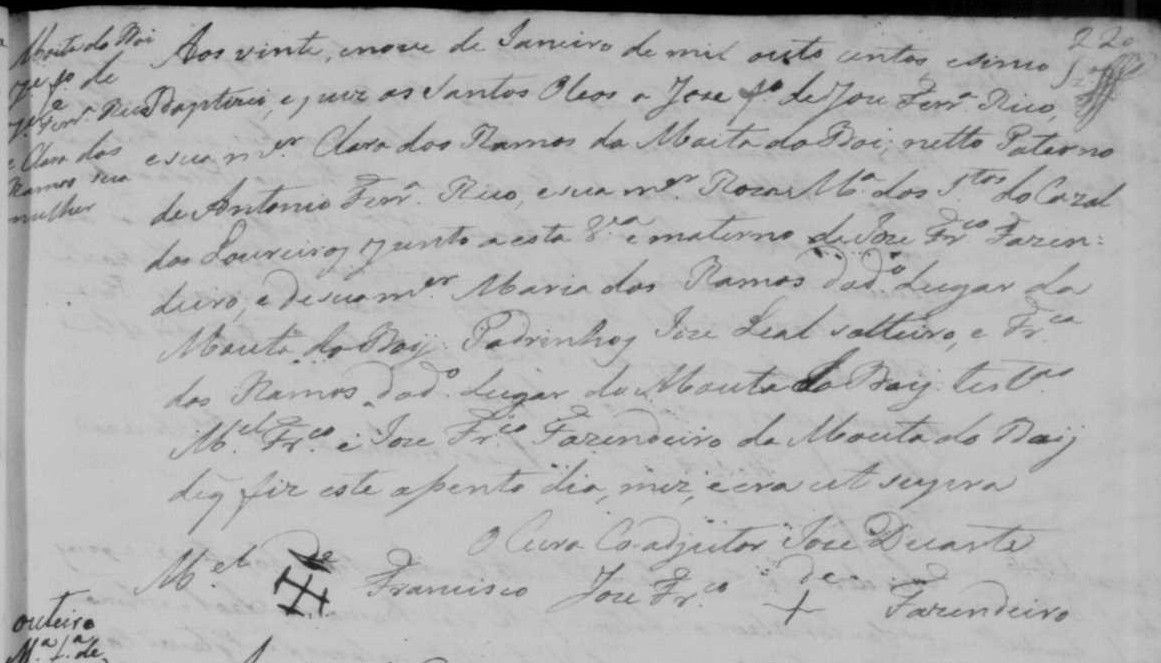 220
Moita do Boi
Je fo de
Je Ferra Rico
e Clara dos
Ramos sua
mulher
Aos vinte, enove de Janeiro de mil outo centos, esinco
Baptizei, e puz os Santos Oleos a Joze fo. de Joze Ferra Rico,
esua mer Clara dos Ramos da Moita do Boi; netto Paterno
de Antonio Ferra. Rico, e sua mer Roza Ma dos Stos do Cazal
dos Loureiros junto a esta Va e materno de Joze Frco Fazen:
deiro, e de sua mer Maria dos Ramos do do Lugar da
Mouta do Boij. Padrinhos Joze Leal solteiro, e Frca
dos Ramos do do Lugar da Mouta do Boij. testas
Mel Frco e Joze Frco Fazendeiro da Mouta do Boij
deq fiz este apento dia, mez, e era ut supra
O Cura Coadjutor Joze Duarte
Mel de Francisco Joze Frco de Fazendeiro
outeiro
Ma fa de